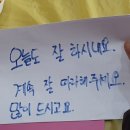 오늘도 잘 하시네요.
계속 잘 따라해주세요.
많이 드시고요.